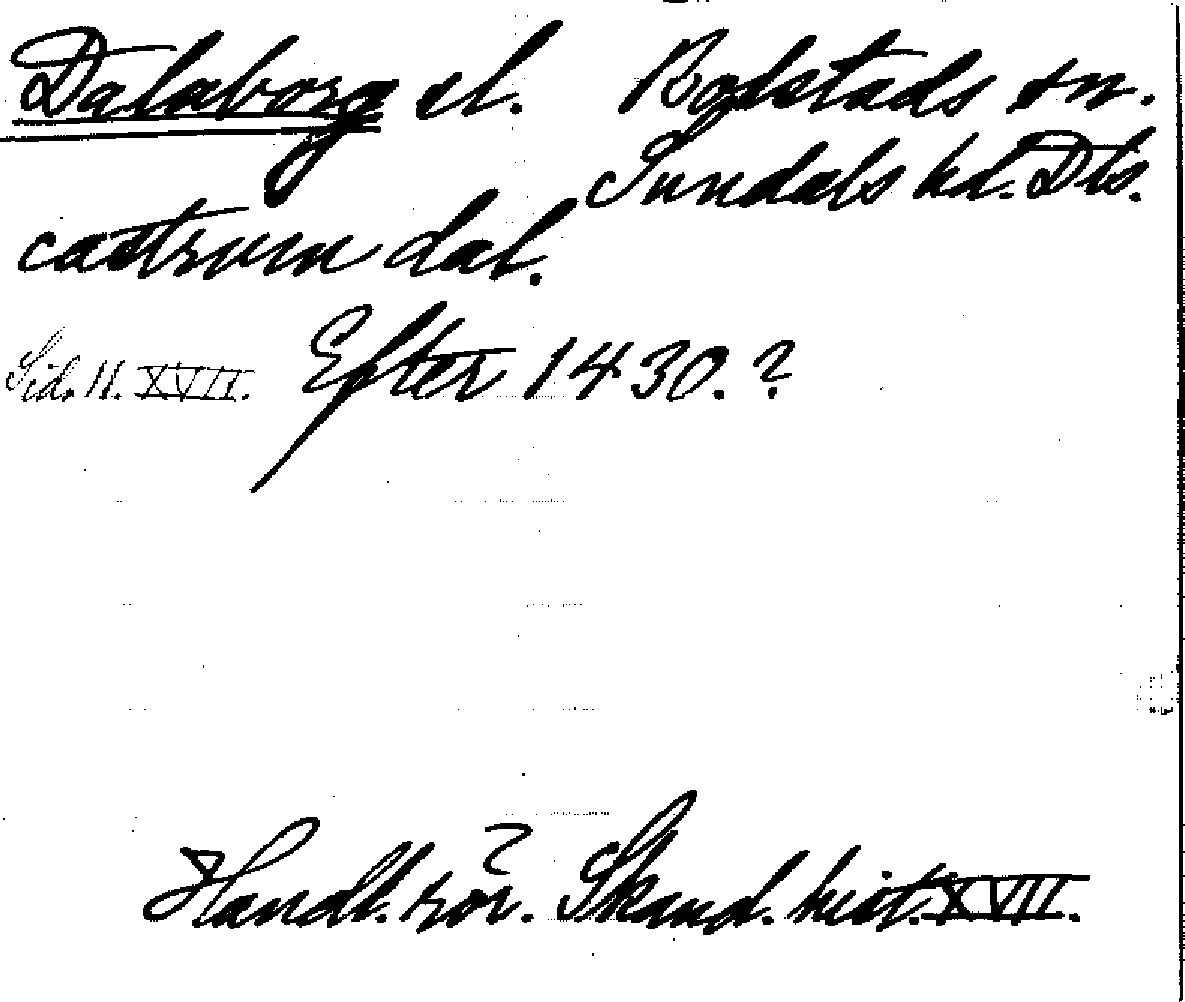 Dalaborg el. Bolstads sn.
Sundals hd. Dls.
castrum dal.
Sid. 11. XVII. Efter 1430.?
Handl. rör. Skand. hist. XVII.